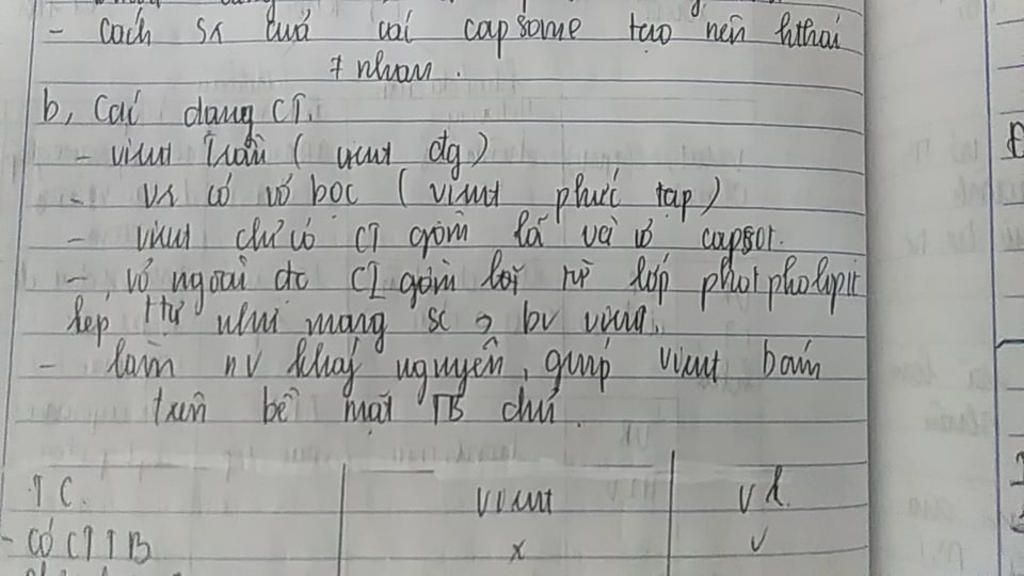 - Cách sx của các capsome tạo nên hthái
≠ nhau.
b, Các dạng CT.
- virut trần ( virut đg )
- VR có vỏ bọc ( virut phức tạp )
- virut chỉ có CT gồm lõi và vỏ capsit.
- vỏ ngoài đc CT gồm lõi từ lớp photpholipit
kép, ttự như màng sc → bv virut.
- làm nv kháng nguyên, giúp virut bám
trên bề mặt TB chủ.
TC. virut vk.
- Có CTTB x v